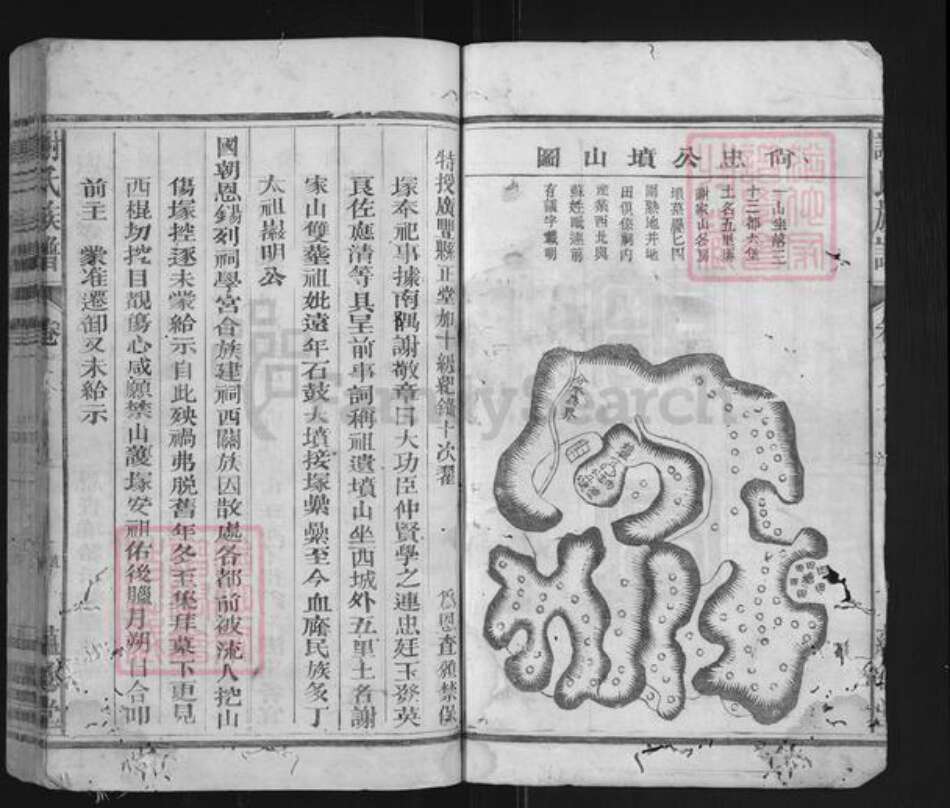 尙忠公墳山圖
一山坐落三
十三都大堡
土名五里牌
謝家山各房
墳墓疊七四
圍熟地并地
田俱係嗣內
產業西北與
蘇姓毗連葡
有議字載明
特授廣豐縣正堂加十級紀錄十次翟 爲恩查雍禁保
塚奉祀事據南隅謝敬章日大功臣仲賢學之連忠廷玉癸英
良佐應清等具呈前事詞稱祖遺墳山坐西城外五里土名謝
家山雙塟祖妣遠年石鼓大墳接塚纍纍至今血食民族系丁
太祖嵓明公
國朝恩錫列祠學宮合族建祠西關族因散處各都前被流人挖山
傷塚控逐未蒙給示自此殃禍弗脫舊年冬至集拜墓下更見
西棍切挖目覩傷心咸願禁山護塚安祖佑後臘月朔日合叩
前主 蒙准遷卸又未給示
謝氏族譜
FamilySearch